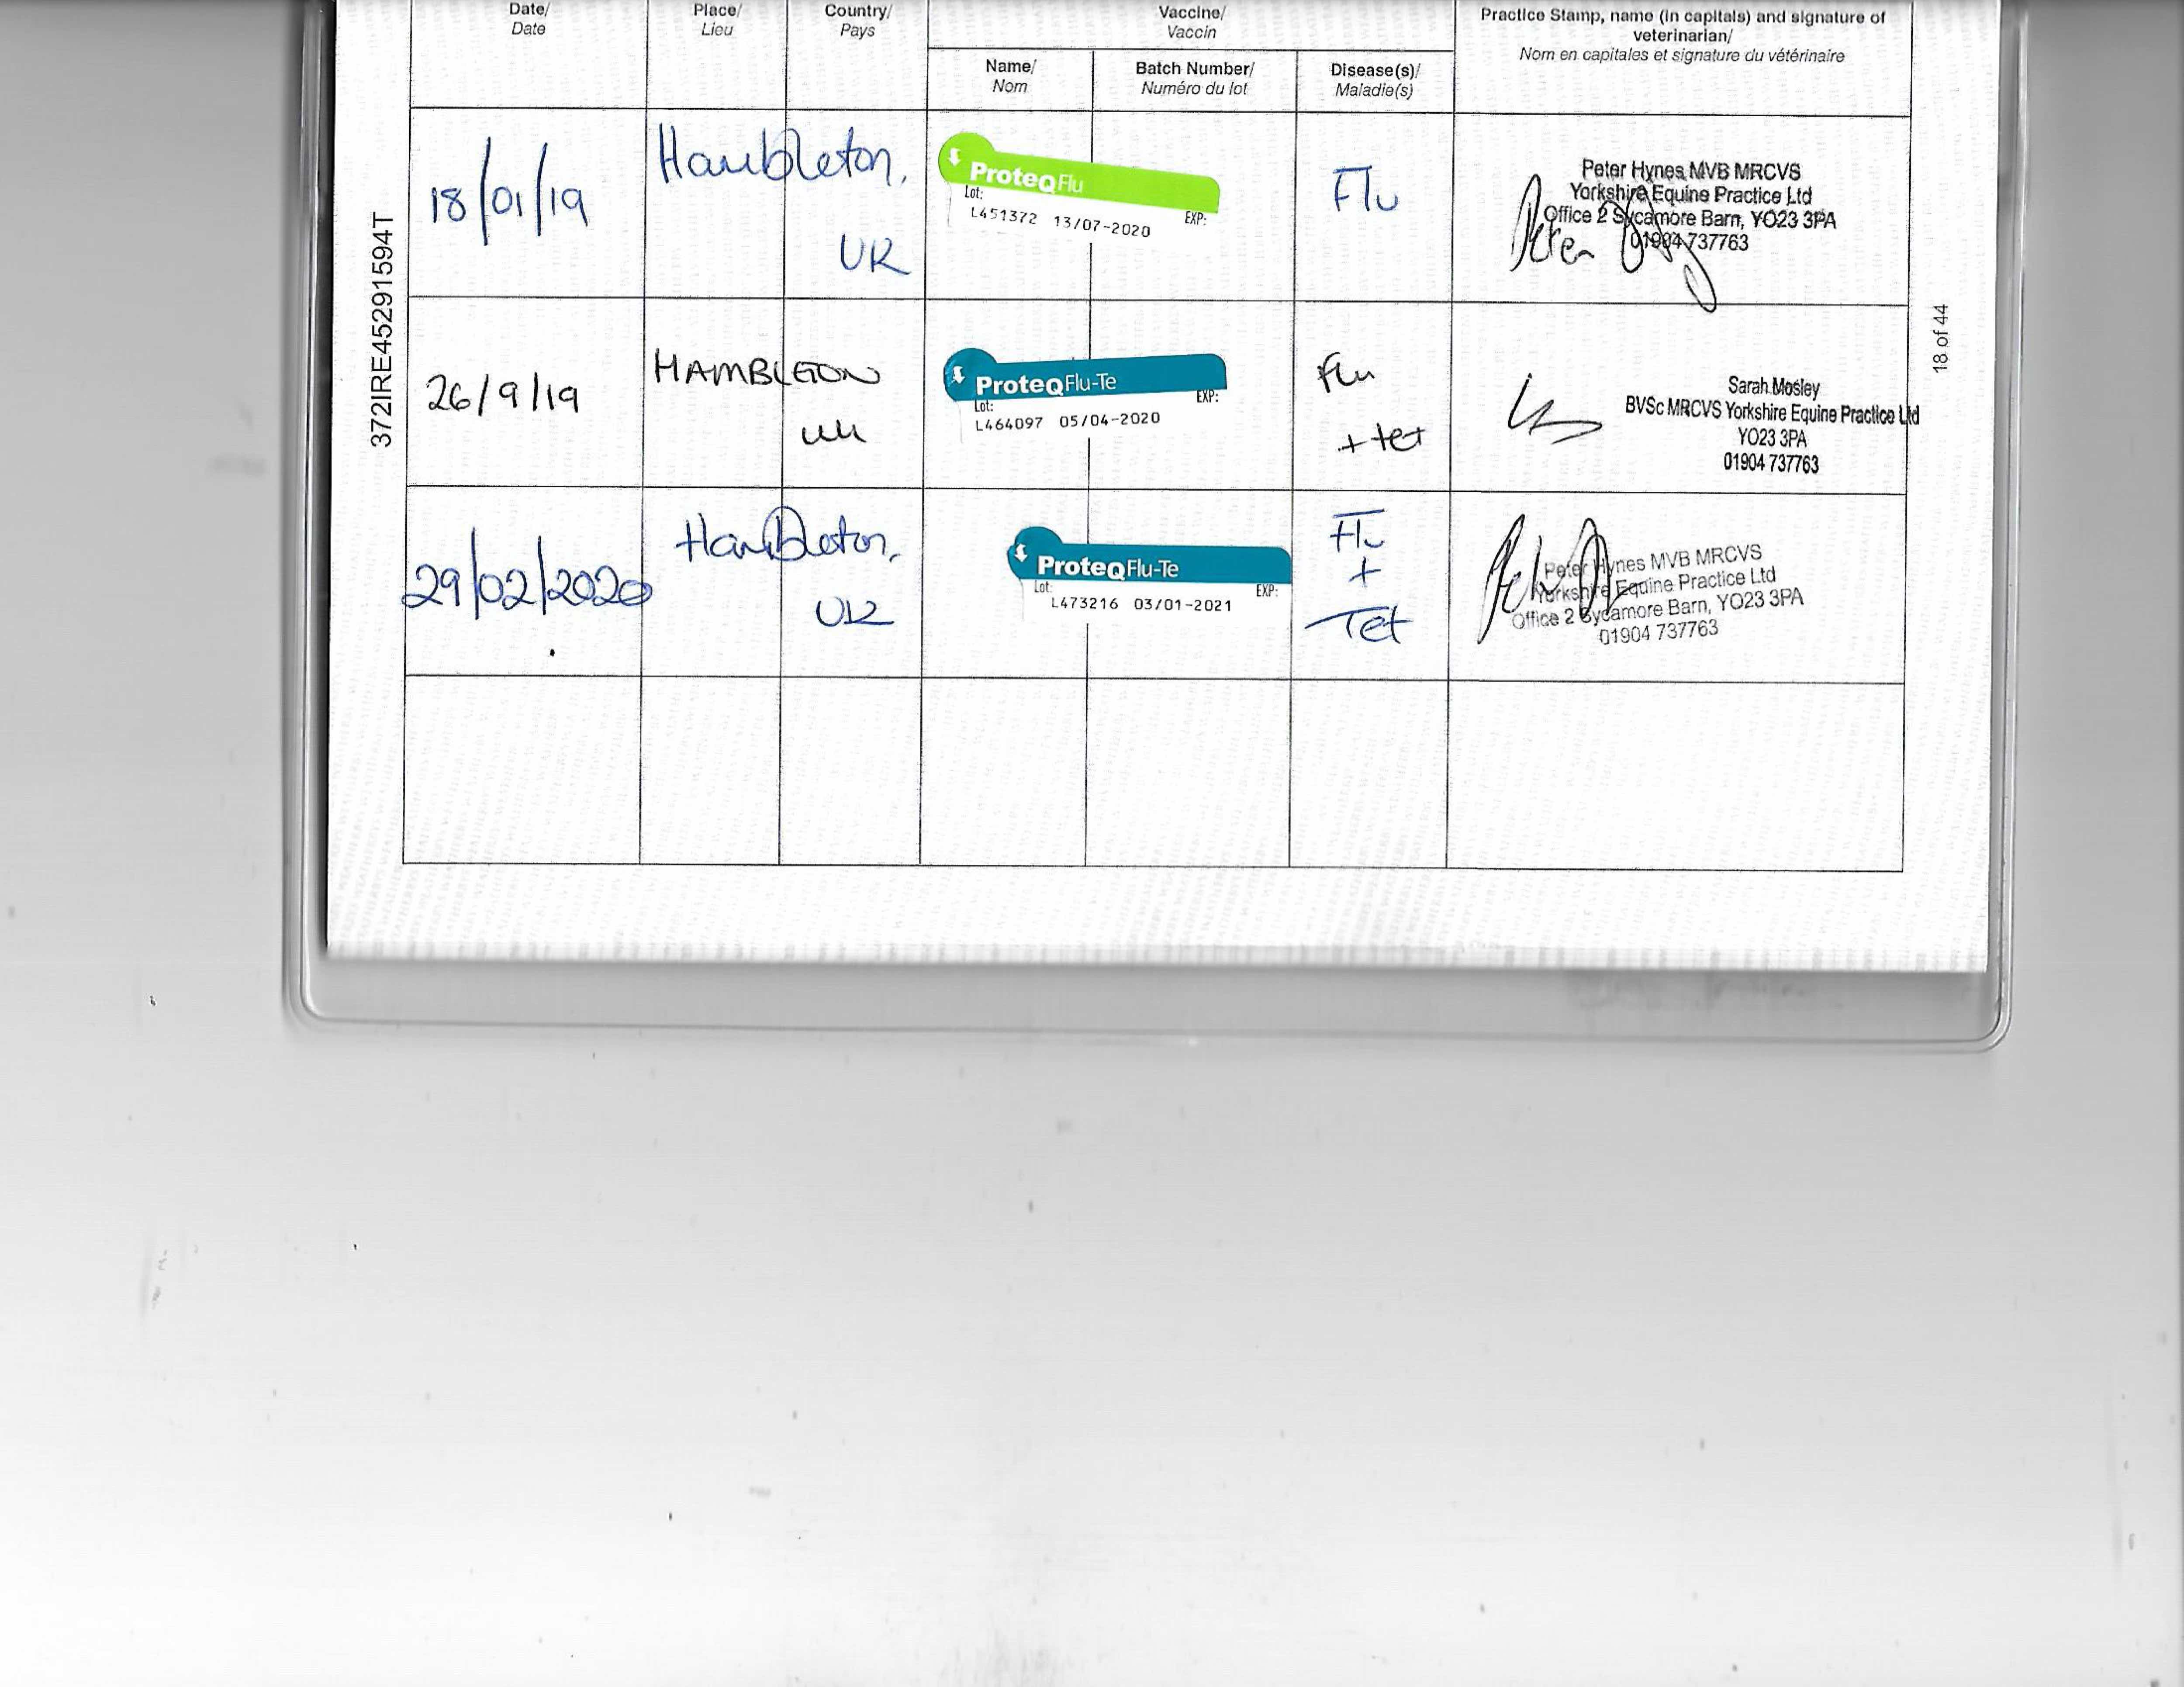 Date/ Place/ Country/ Vaccine/ Practice Stamp, name (in capitals) and signature of
Date Lieu Pays Vaccin veterinarian/
Nom en capitales et signature du vétérinaire
Name/ Batch Number/ Disease(s)/
Nom Numéro du lot Maladie(s)
18/01/19 Hambleton,
UK
ProteqFlu
Lot: EXP:
L451372 13/07-2020
Flu
Peter Hynes MVB MRCVS
Yorkshire Equine Practice Ltd
Office 2 Sycamore Barn, YO23 3PA
01904 737763
26/9/19 HAMBLETON
UK
ProteqFlu-Te
Lot: EXP:
L464097 05/04-2020
Flu
+ tet
Sarah Mosley
BVSc MRCVS Yorkshire Equine Practice Ltd
YO23 3PA
01904 737763
29/02/2020 Hambleton,
UK
ProteqFlu-Te
Lot: EXP:
L473216 03/01-2021
Flu
+
Tet
Peter Hynes MVB MRCVS
Yorkshire Equine Practice Ltd
Office 2 Sycamore Barn, YO23 3PA
01904 737763
372IRE45291594T
18 of 44